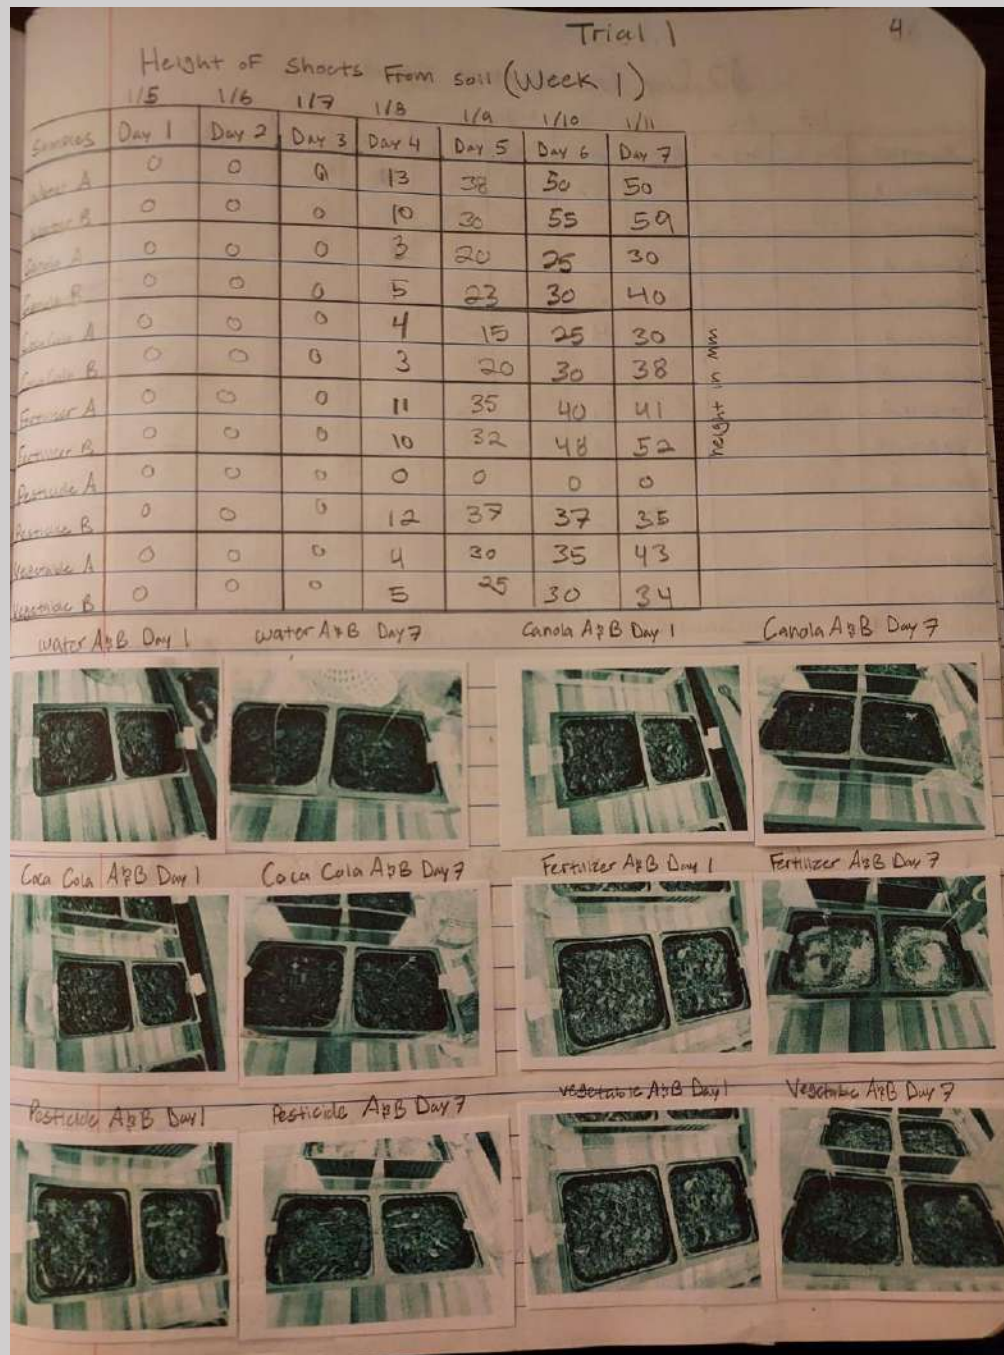 Trial 1 4
Height of shoots From soil (Week 1)
1/5 1/6 1/7 1/8 1/9 1/10 1/11
Samples Day 1 Day 2 Day 3 Day 4 Day 5 Day 6 Day 7
Water A 0 0 0 13 38 50 50
Water B 0 0 0 10 30 55 59
Canola A 0 0 0 3 20 25 30
Canola B 0 0 0 5 23 30 40
Coca Cola A 0 0 0 4 15 25 30
Coca Cola B 0 0 0 3 20 30 38
Fertilizer A 0 0 0 11 35 40 41
Fertilizer B 0 0 0 10 32 48 52
Pesticide A 0 0 0 0 0 0 0
Pesticide B 0 0 0 12 37 37 35
Vegetable A 0 0 0 4 30 35 43
Vegetable B 0 0 0 5 25 30 34
height in mm
water A&B Day 1 water A&B Day 7 Canola A&B Day 1 Canola A&B Day 7
Coca Cola A&B Day 1 Coca Cola A&B Day 7 Fertilizer A&B Day 1 Fertilizer A&B Day 7
Pesticide A&B Day 1 Pesticide A&B Day 7 vegetable A&B Day 1 Vegetable A&B Day 7